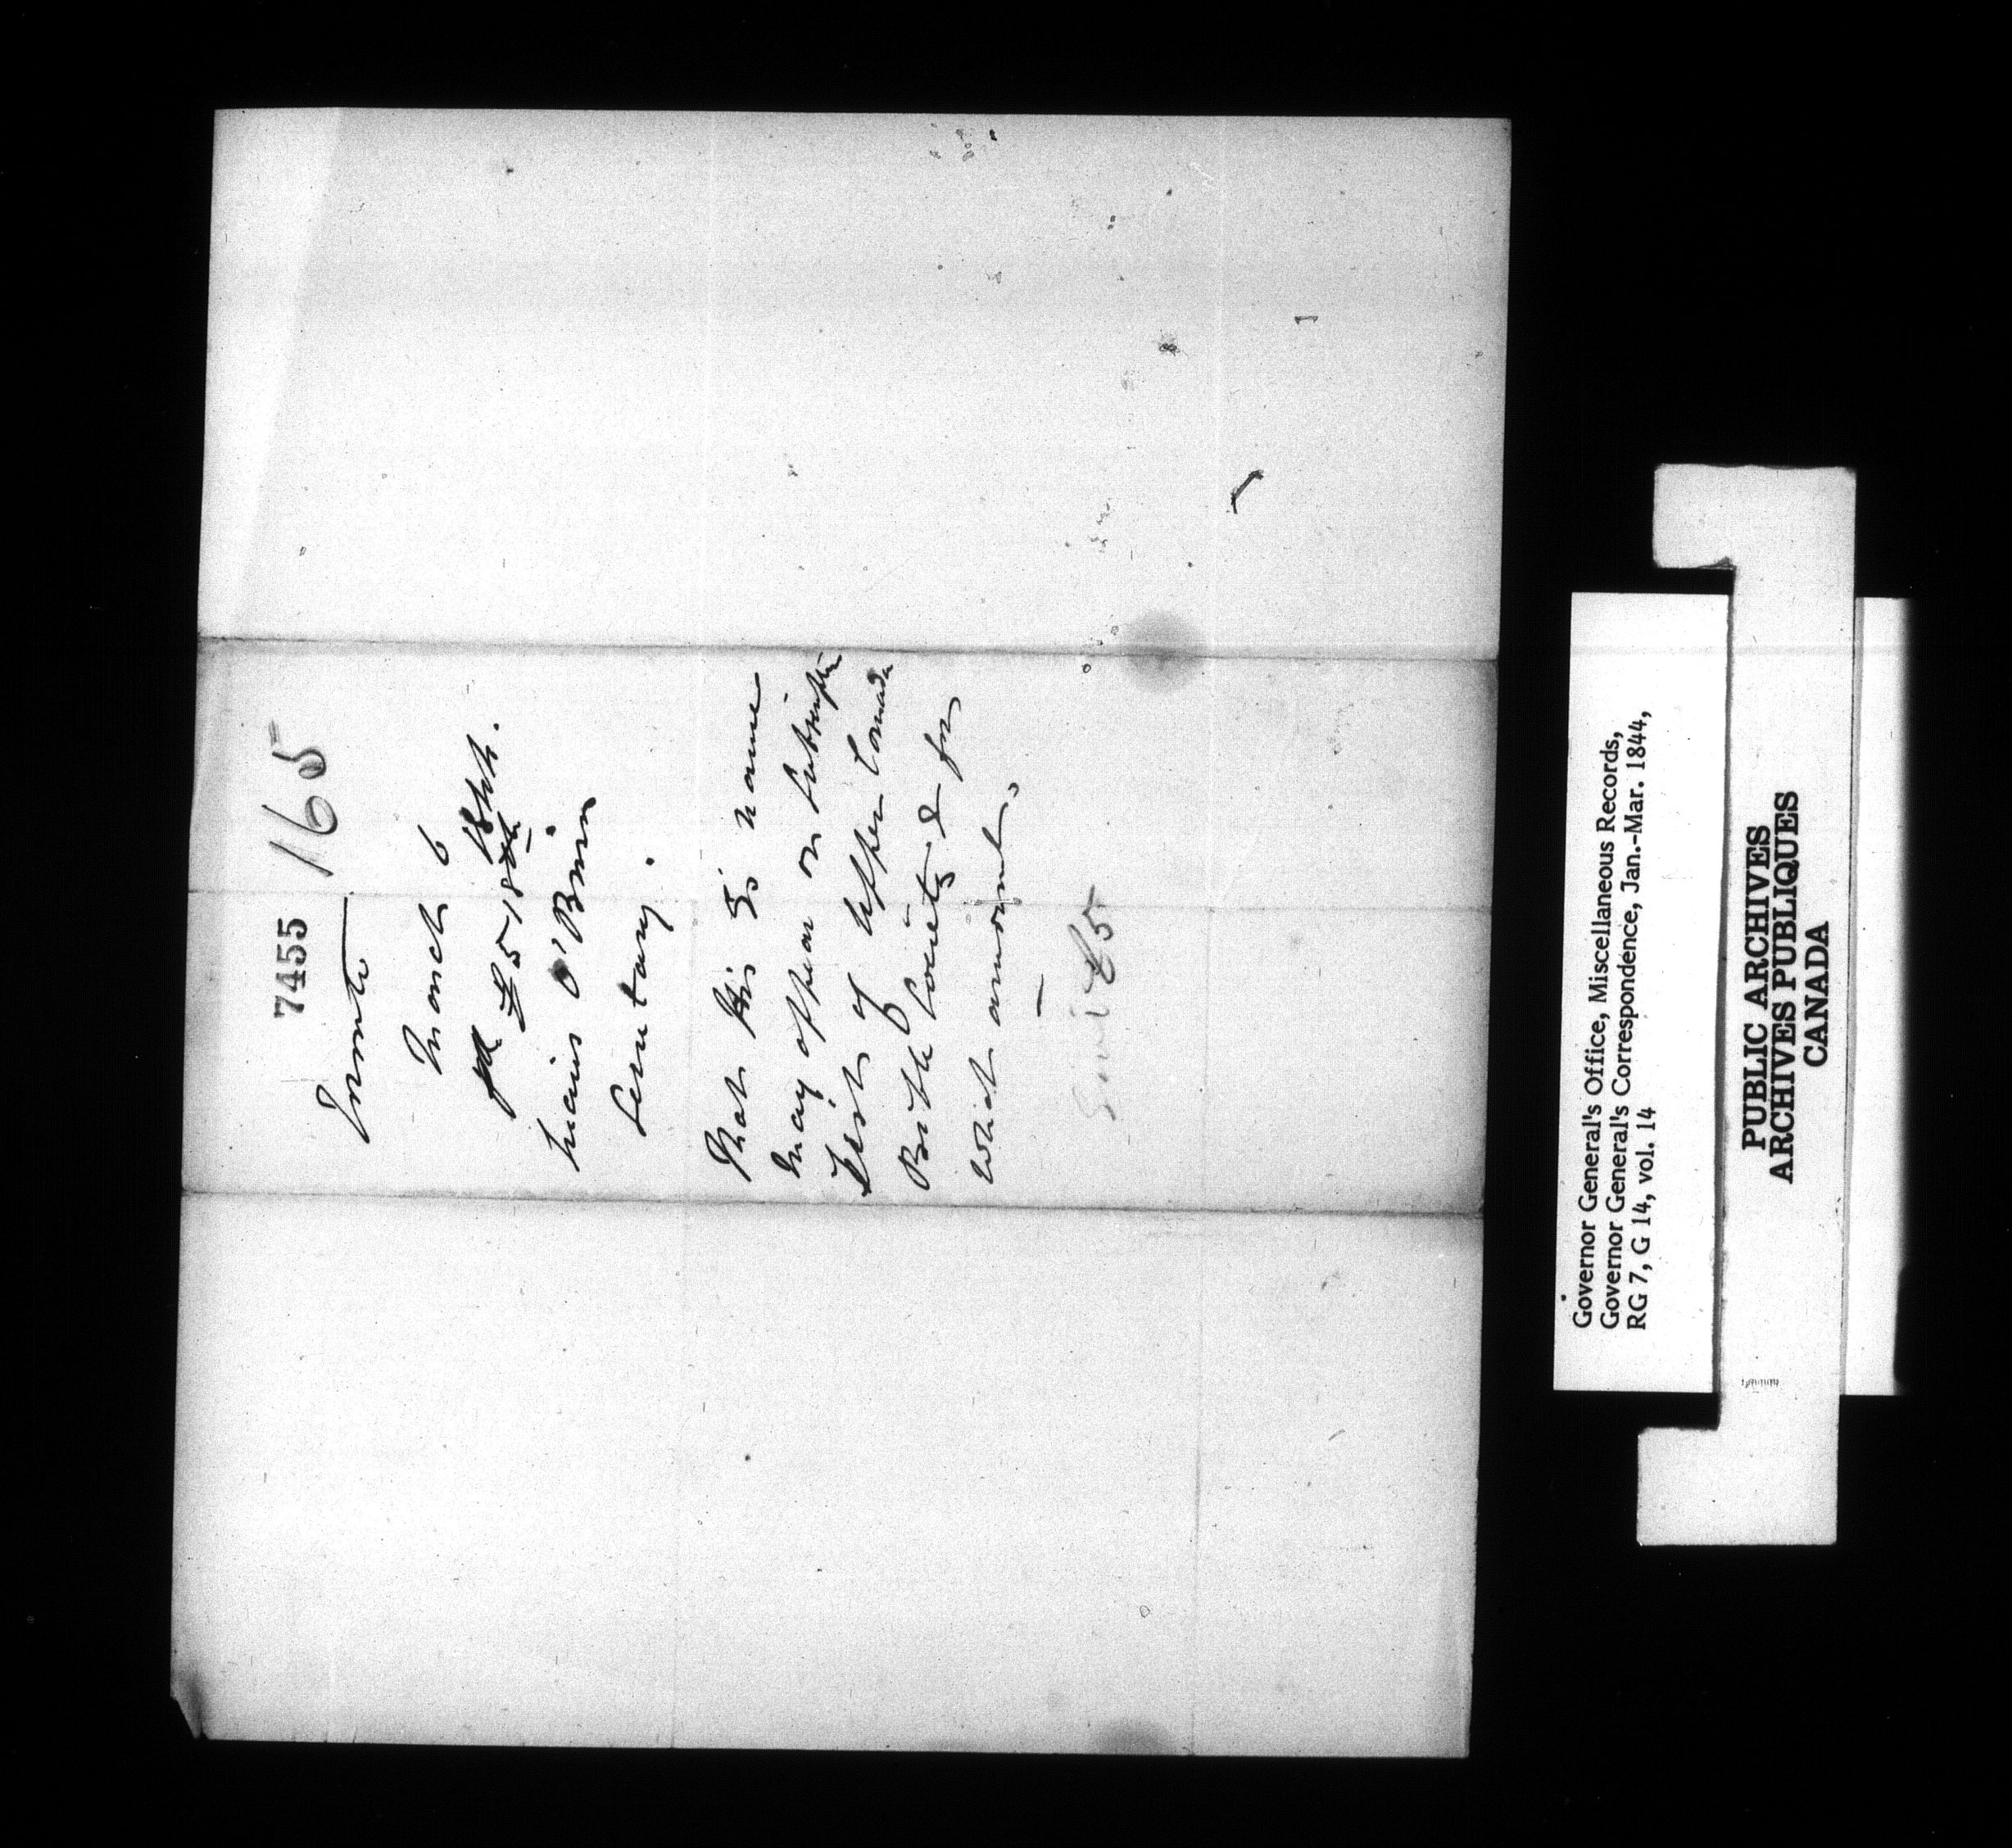 7455 165
Toronto
March 6
pd £5 18th.
Lucius O'Brien
Secretary.
That His Ex's name
may appear on Subscription
List of Upper Canada
Bible Society & for
what amount.
£5
Governor General's Office, Miscellaneous Records,
Governor General's Correspondence, Jan.-Mar. 1844,
RG 7, G 14, vol. 14
PUBLIC ARCHIVES
ARCHIVES PUBLIQUES
CANADA